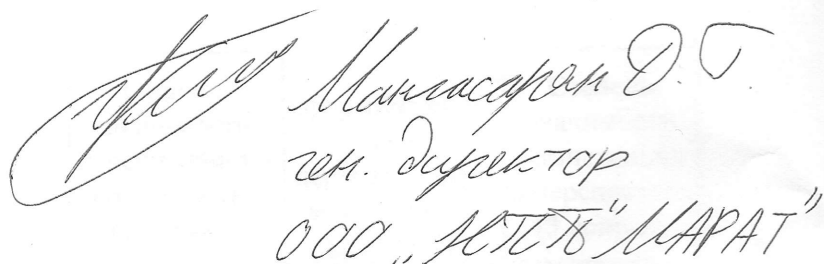 Мангасарян Д. Г.
ген. директор
ООО „НПП "МАРАТ"